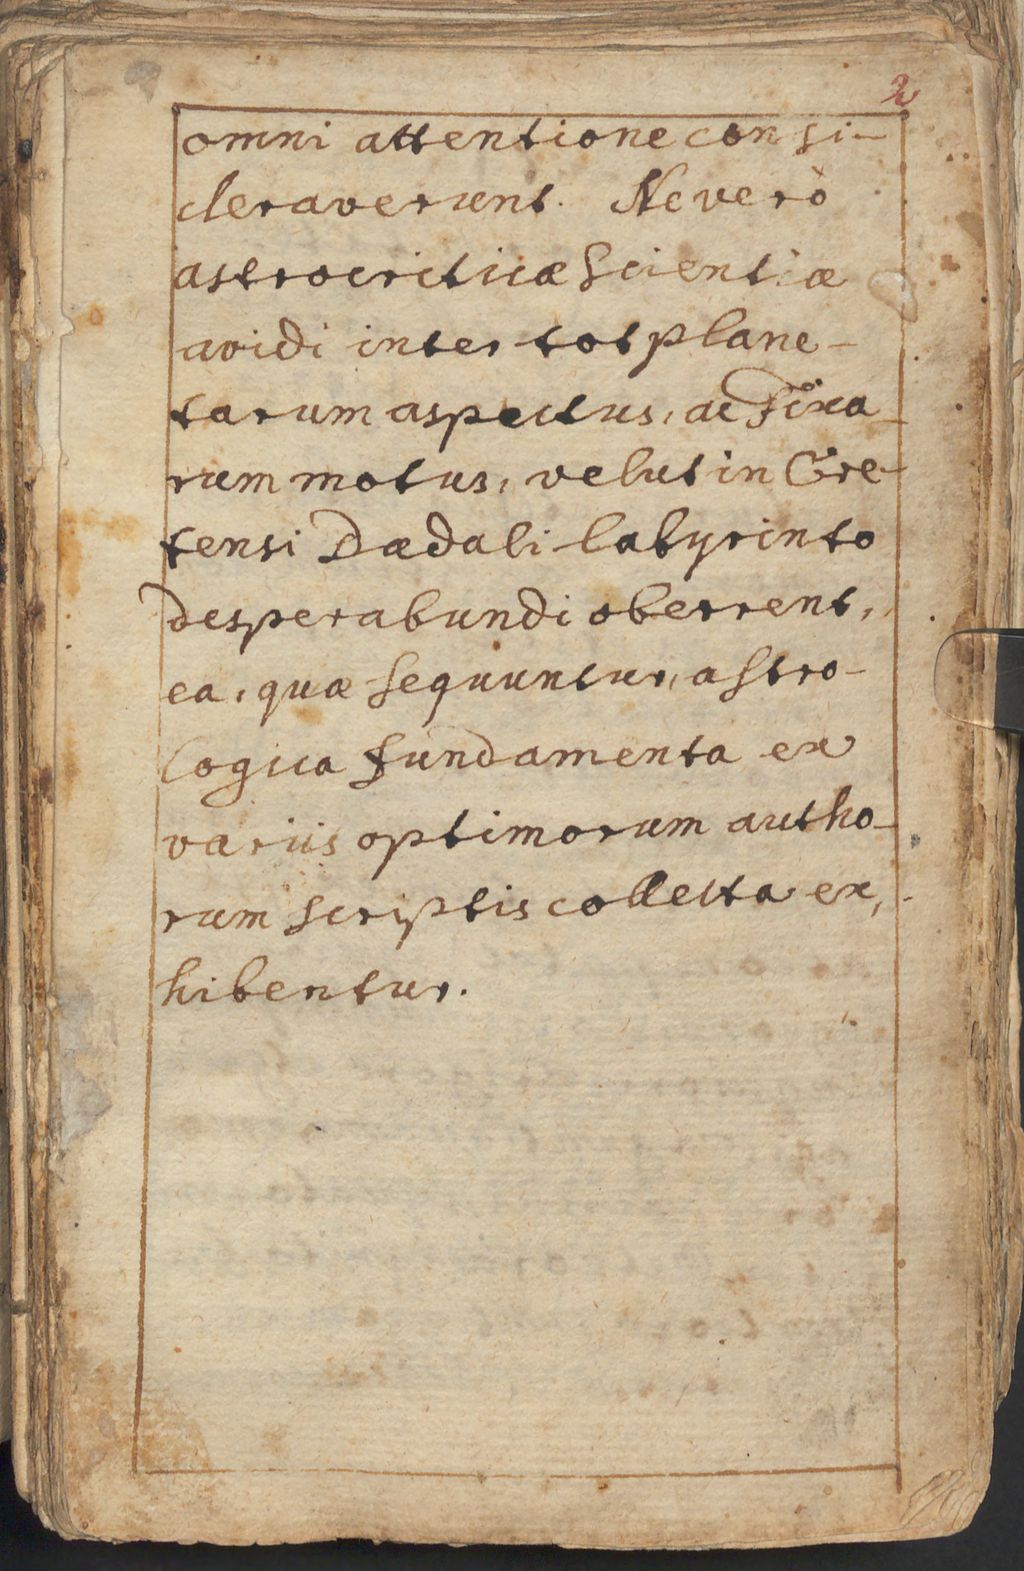 2
omni attentione consi-
deraverunt. Ne verò
astrocriticæ scientiæ
avidi inter tot plane-
tarum aspectus, ac Fixa-
rum motus, velut in Cre-
tensi Dædali labyrinto
desperabundi oberrent,
ea, quæ sequuntur, astro-
logica fundamenta ex
variis optimorum autho-
rum scriptis collecta ex,
hibentur.